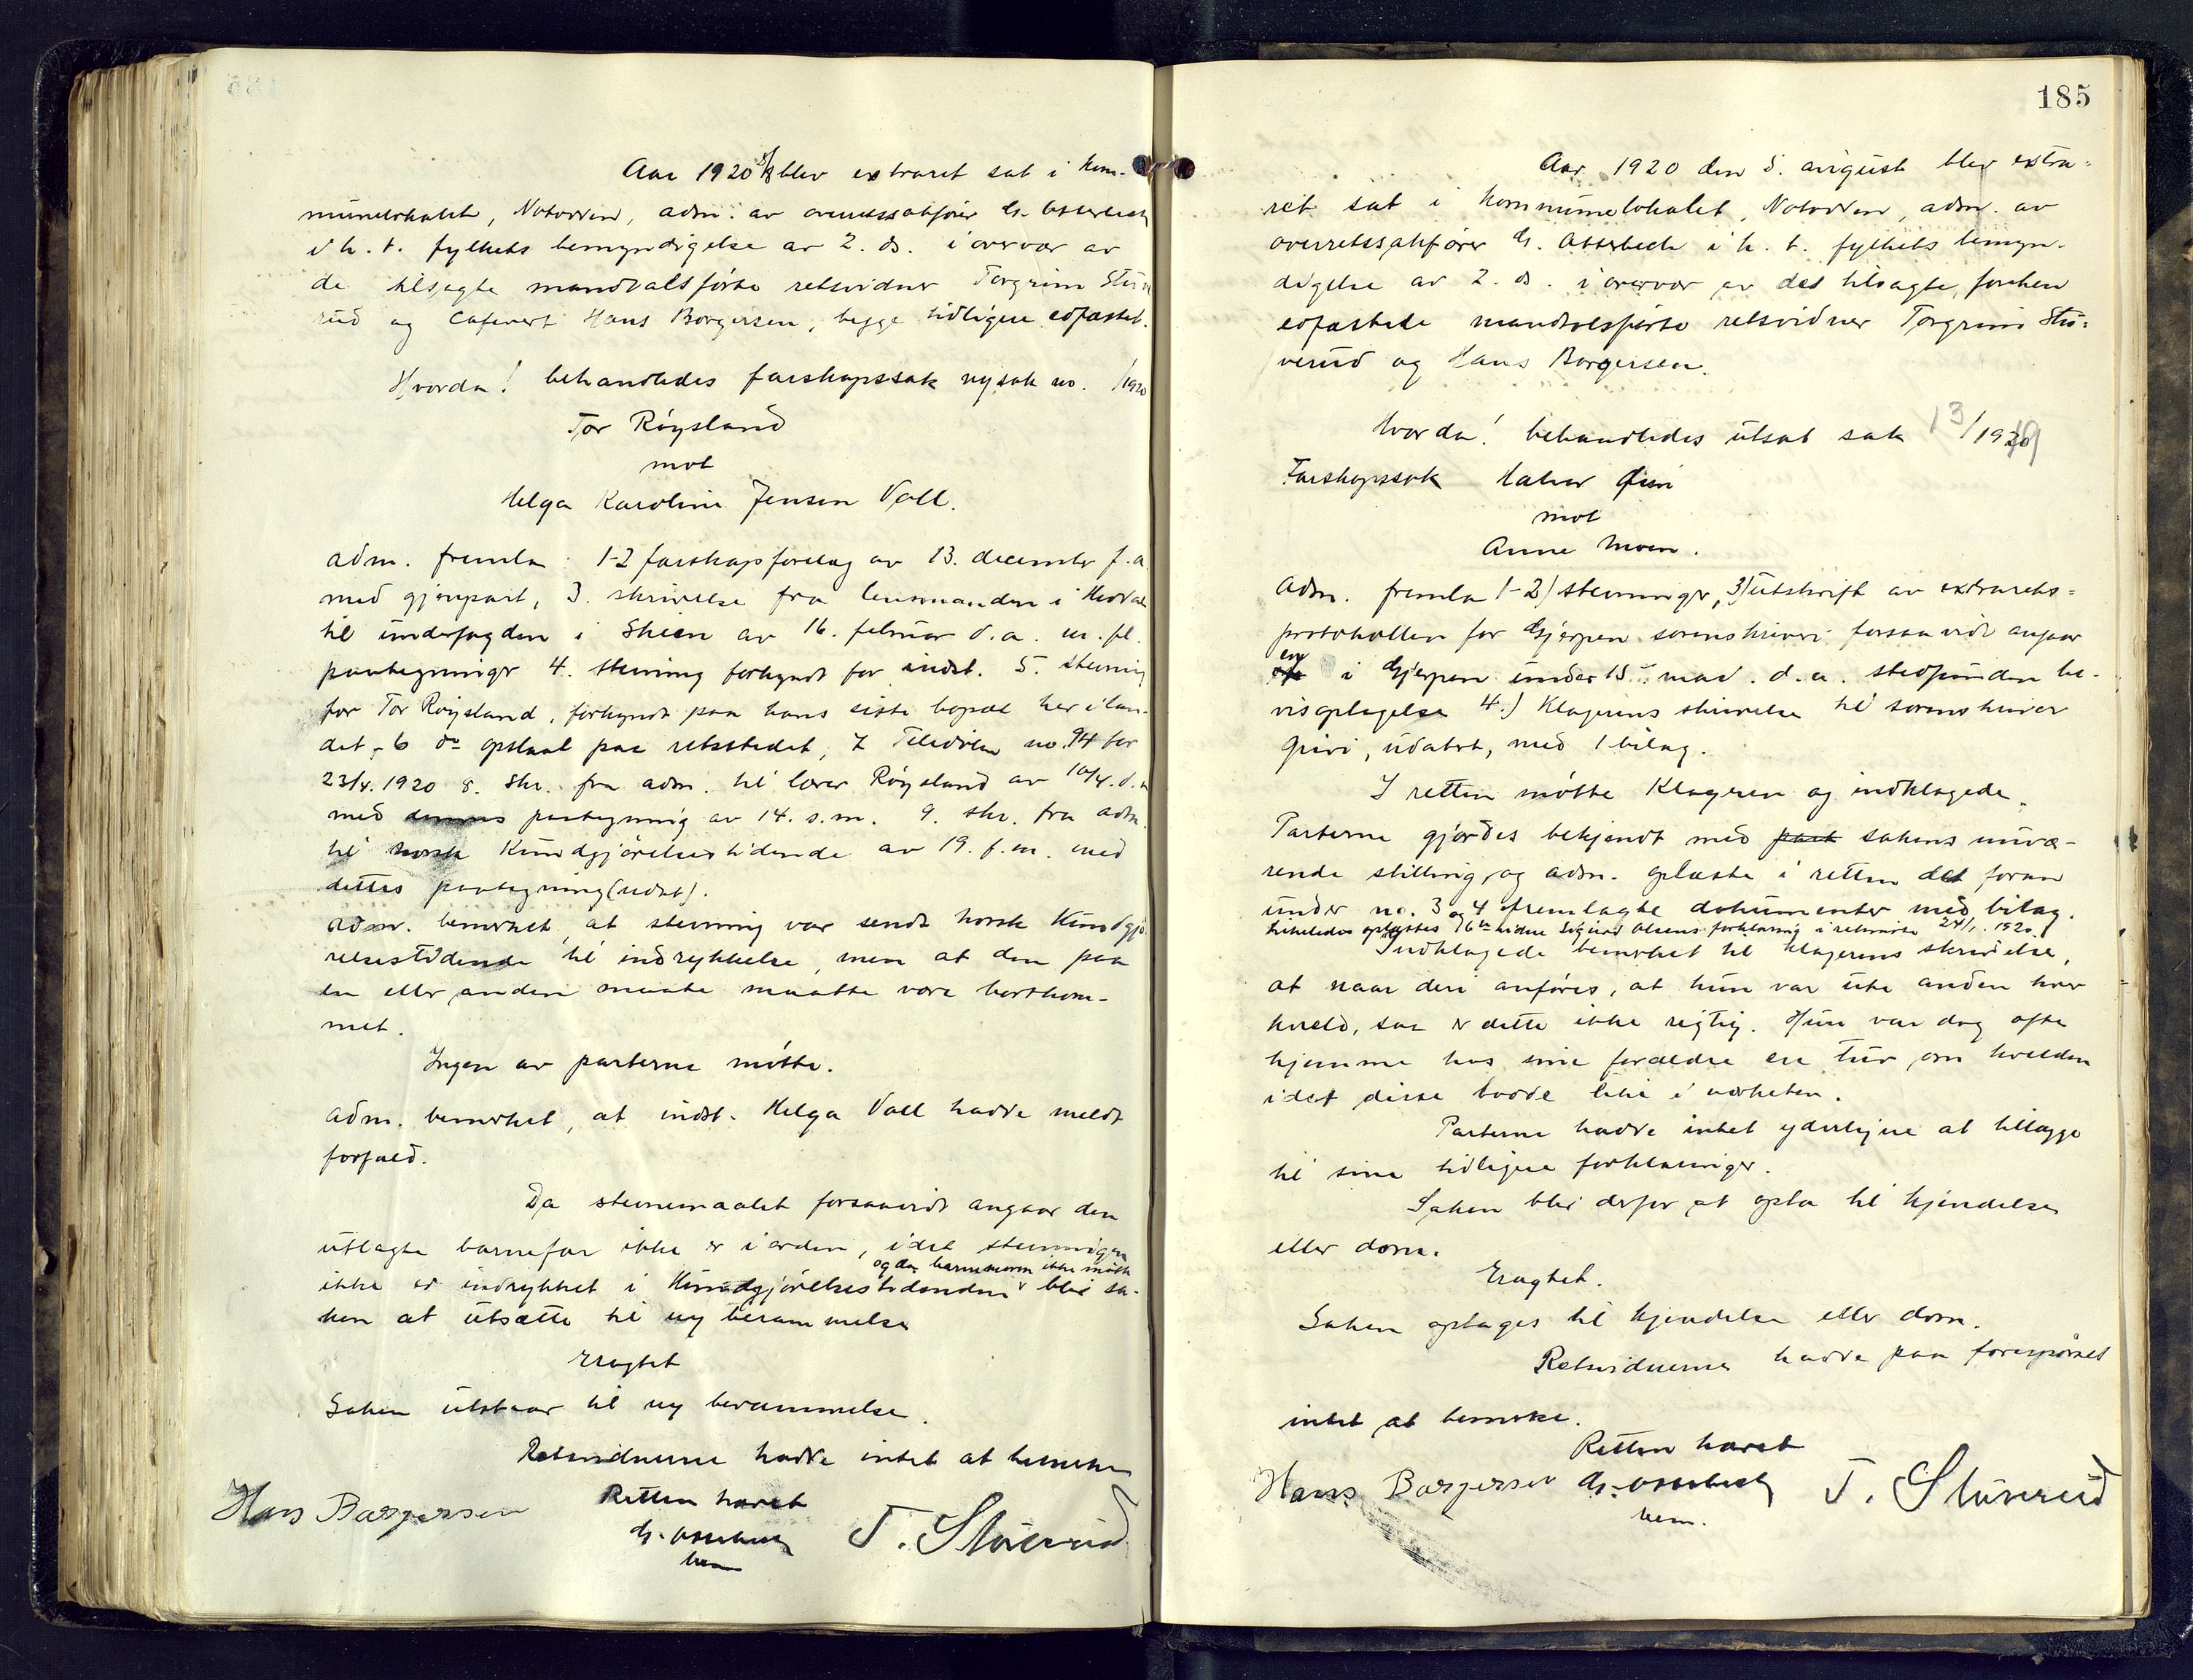 Aar 1920 5/8 blev extraret sat i kom-
munelokalet, Notodden, adm. av overretssakfører G. Osterbech
i h. t. fylkets bemyndigelse av 2. ds. i overvær av
de tilsagte mandtalsførte retsvidner Torgrim Stuve
rud og Cafevert Hans Borgersen, begge tidligere edfæstet.
Hvorda! behandledes farskapssak nysak no. /1920
Tor Røysland
mot
Helga Karoline Jensen Vall.
Adm. fremla 1-2 farskapsforelæg av 13. december f.a.
med gjenpart, 3. skrivelse fra lensmanden i
til underfogden i Skien av 16. februar d.a. m. fl.
paategninger 4. stevning forkyndt for indst. 5. stevning
for Tor Røysland, forkyndt paa hans siste bopæl her i lan-
det, 6 do opslaat paa retsstedet, 7 Teledølen no. 94 for
23/4. 1920 8. skr. fra adm. til lærer Røysland av 10/4. d.a
med dennes paategning av 14. s.m. 9. skr. fra adm.
til norsk Kundgjørelsestidende av 19. f.m. med
dettes paategning (udat).
Adm. bemerket, at stevning var sendt norsk Kundgjø
relsestidende til indrykkelse, men at den paa
en eller anden maate maatte være bortkom-
met.
Ingen av parterne møtte.
Adm. bemerket, at indst. Helga Vall hadde meldt
forfald.
Da stevnemaalet forsaavidt angaar den
utlagte barnefar ikke er i orden, idet stevningen
og da barnemoren ikke møtte
ikke er indrykket i Kundgjørelsestidenden blir sa-
ken at utsætte til ny berammelse
Eragtet
Saken utstaar til ny berammelse.
Retsvidnerne hadde intet at bemerke
Retten hævet
Hans Borgersen G. Osterbech T. Stuverud
bem
185
Aar 1920 den 5. august blev extra-
ret sat i Kommunelokalet, Notodden, adm. av
overretssakfører G. Osterbech i h. t. fylkets bemyn-
digelse av 2. ds. i overvær av det tilsagte, forhen
edfæstede mandtalsførte retsvidner Torgrim Stu-
verud og Hans Borgersen.
Hvorda! behandledes utsat sak 13/1919
Farskapssak Halvor
mot
Anne Moen.
Adm. fremla 1-2) stevninger, 3) utskrift av extrarets-
protokollen for Gjerpen sorenskriveri forsaavidt angaar
en i Gjerpen under 15. mai d.a. stedfunden be-
visoptagelse 4.) Klagerens skrivelse til sorenskriver
, udatert, med 1 bilag.
I retten møtte Klageren og indklagede.
Parterne gjordes bekjendt med part sakens nuvæ-
rende stilling, og adm. oplæste i retten det foran
under no. 3 og 4 fremlagte dokumenter med bilag.
Likeledes oplæstes 6te vidne Sigurd Olsens forklaring i retsmøte 24/1. 1920.
Indklagede bemerket til klagerens skrivelse,
at naar deri anføres, at hun var ute anden hver
kveld, saa er dette ikke rigtig. Hun var dog ofte
hjemme hos sine forældre en tur om kvelden
idet disse bodde like i nærheten.
Parterne hadde intet yderligere at tillægge
til sine tidligere forklaringer.
Saken blir derfor at opta til kjendelse
eller dom.
Eragtet.
Saken optages til kjendelse eller dom.
Retsvidnerne hadde paa forespørsel
intet at bemerke.
Retten hævet
Hans Borgersen G. Osterbech T. Stuverud
bem.